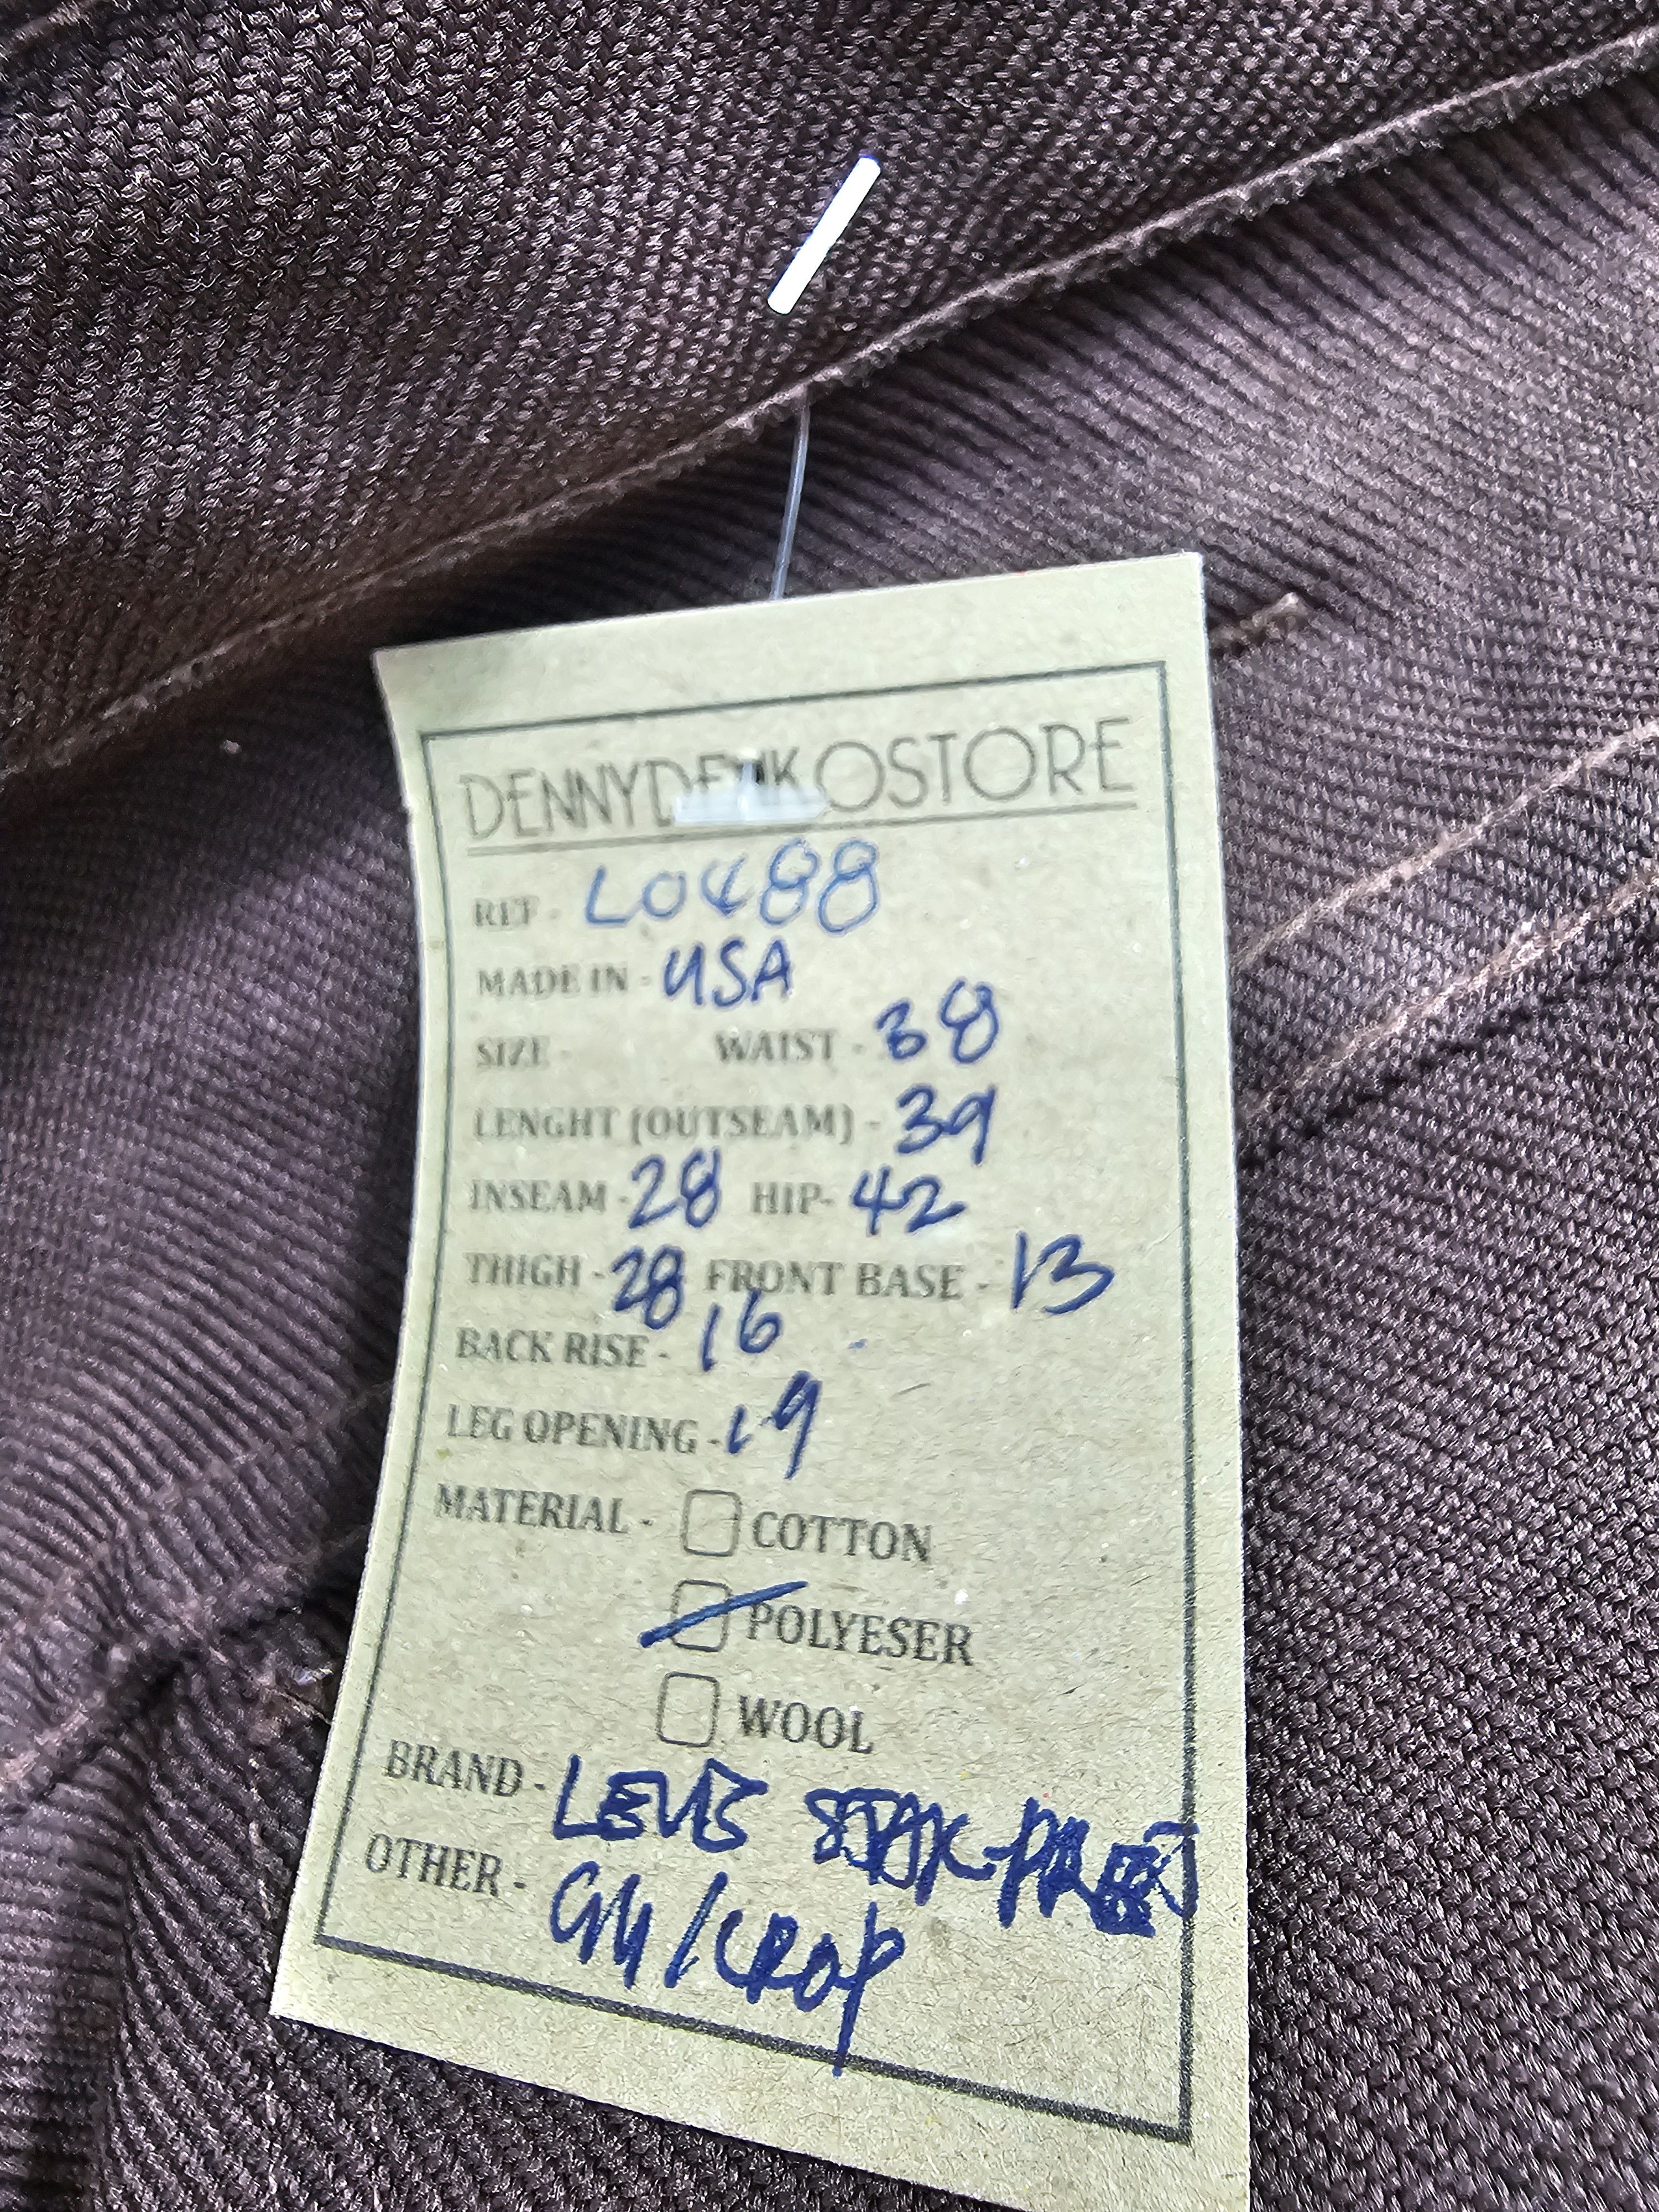 DENNYDENKOSTORE
REF - L0488
MADE IN - USA
SIZE - WAIST - 38
LENGHT (OUTSEAM) - 39
INSEAM - 28 HIP- 42
THIGH - 28 FRONT BASE - 13
BACK RISE - 16
LEG OPENING - 19
MATERIAL - COTTON
POLYESER
WOOL
BRAND - LEVIS
OTHER - /CROP